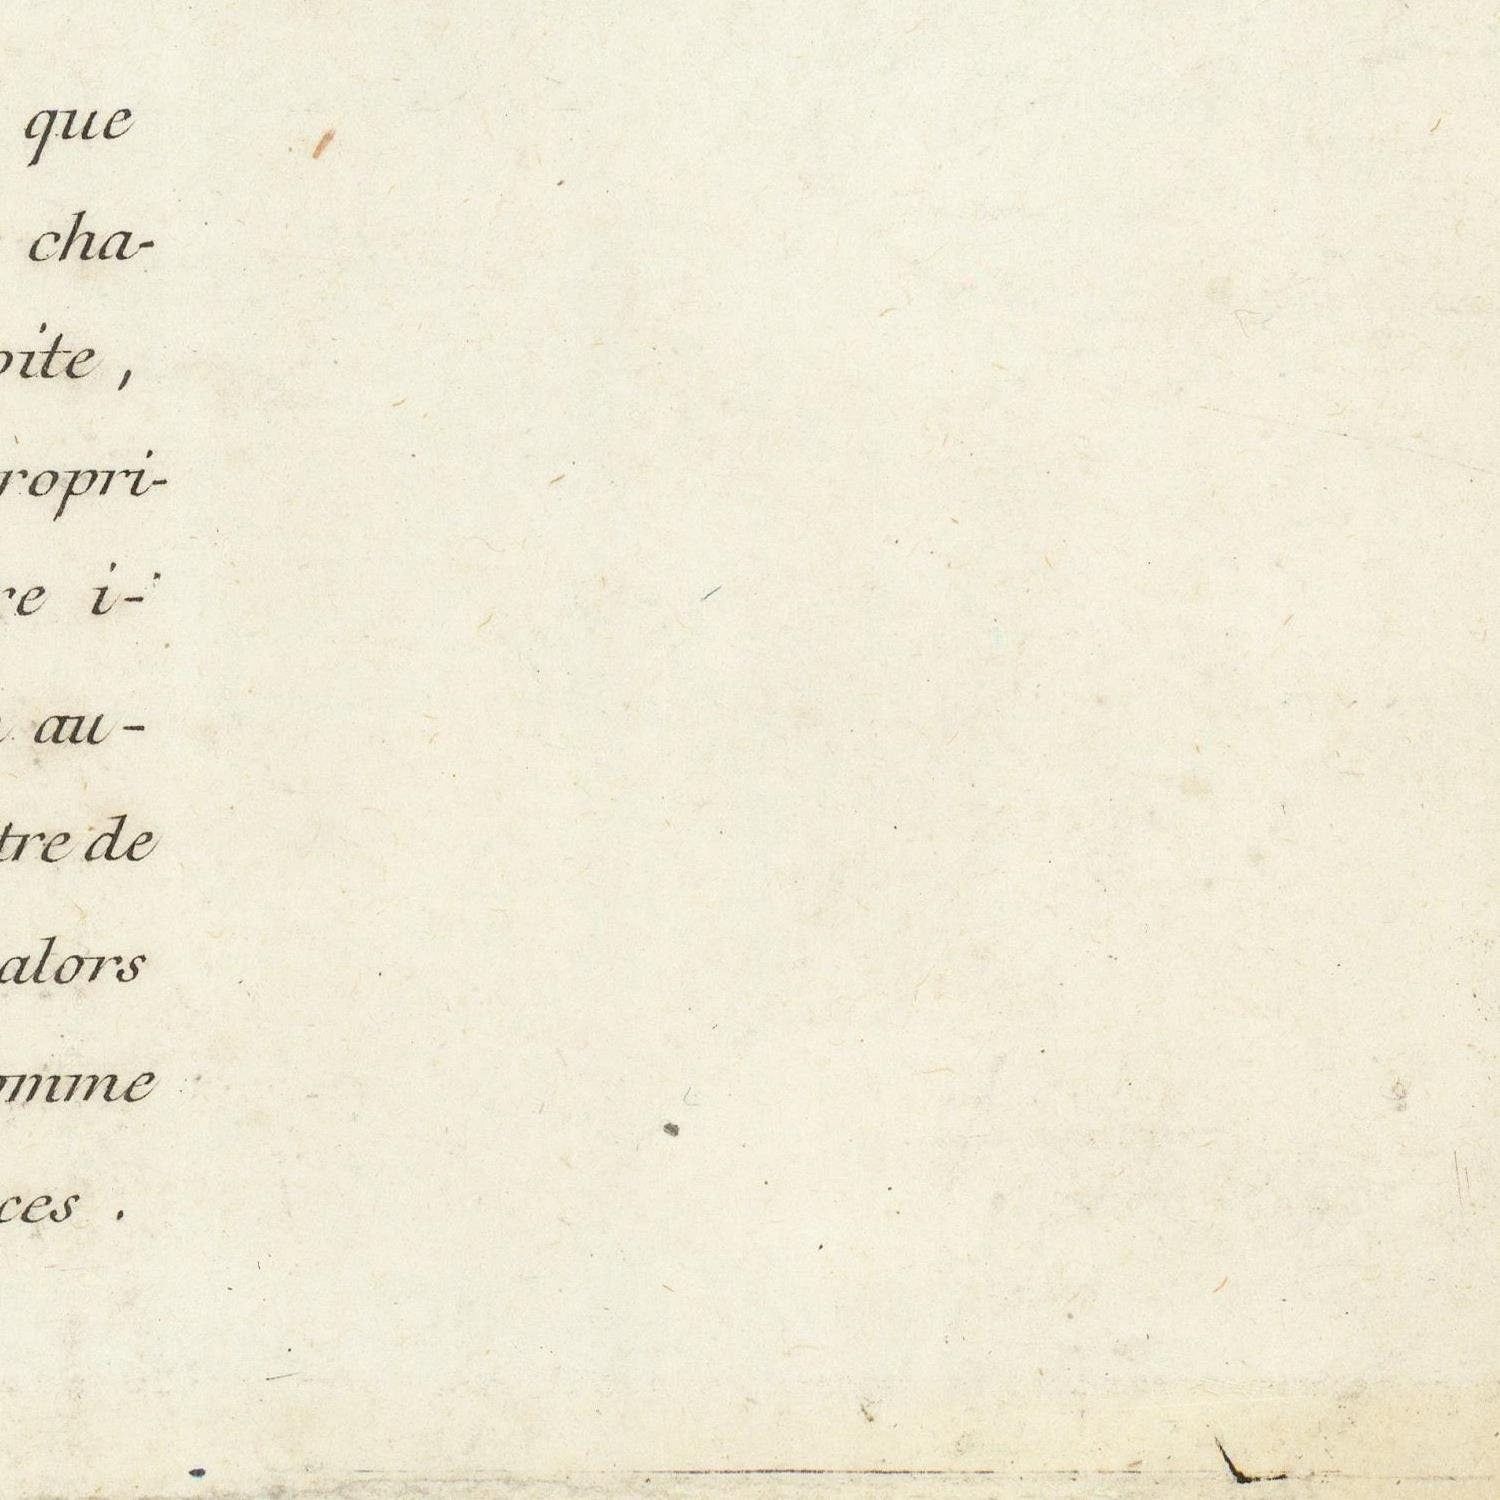 que
cha-
oite,
ropri-
re i-
au-
tre de
alors
omme
ces.